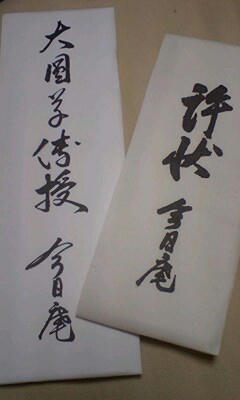 大圓草傳授
今日庵
許状
今日庵